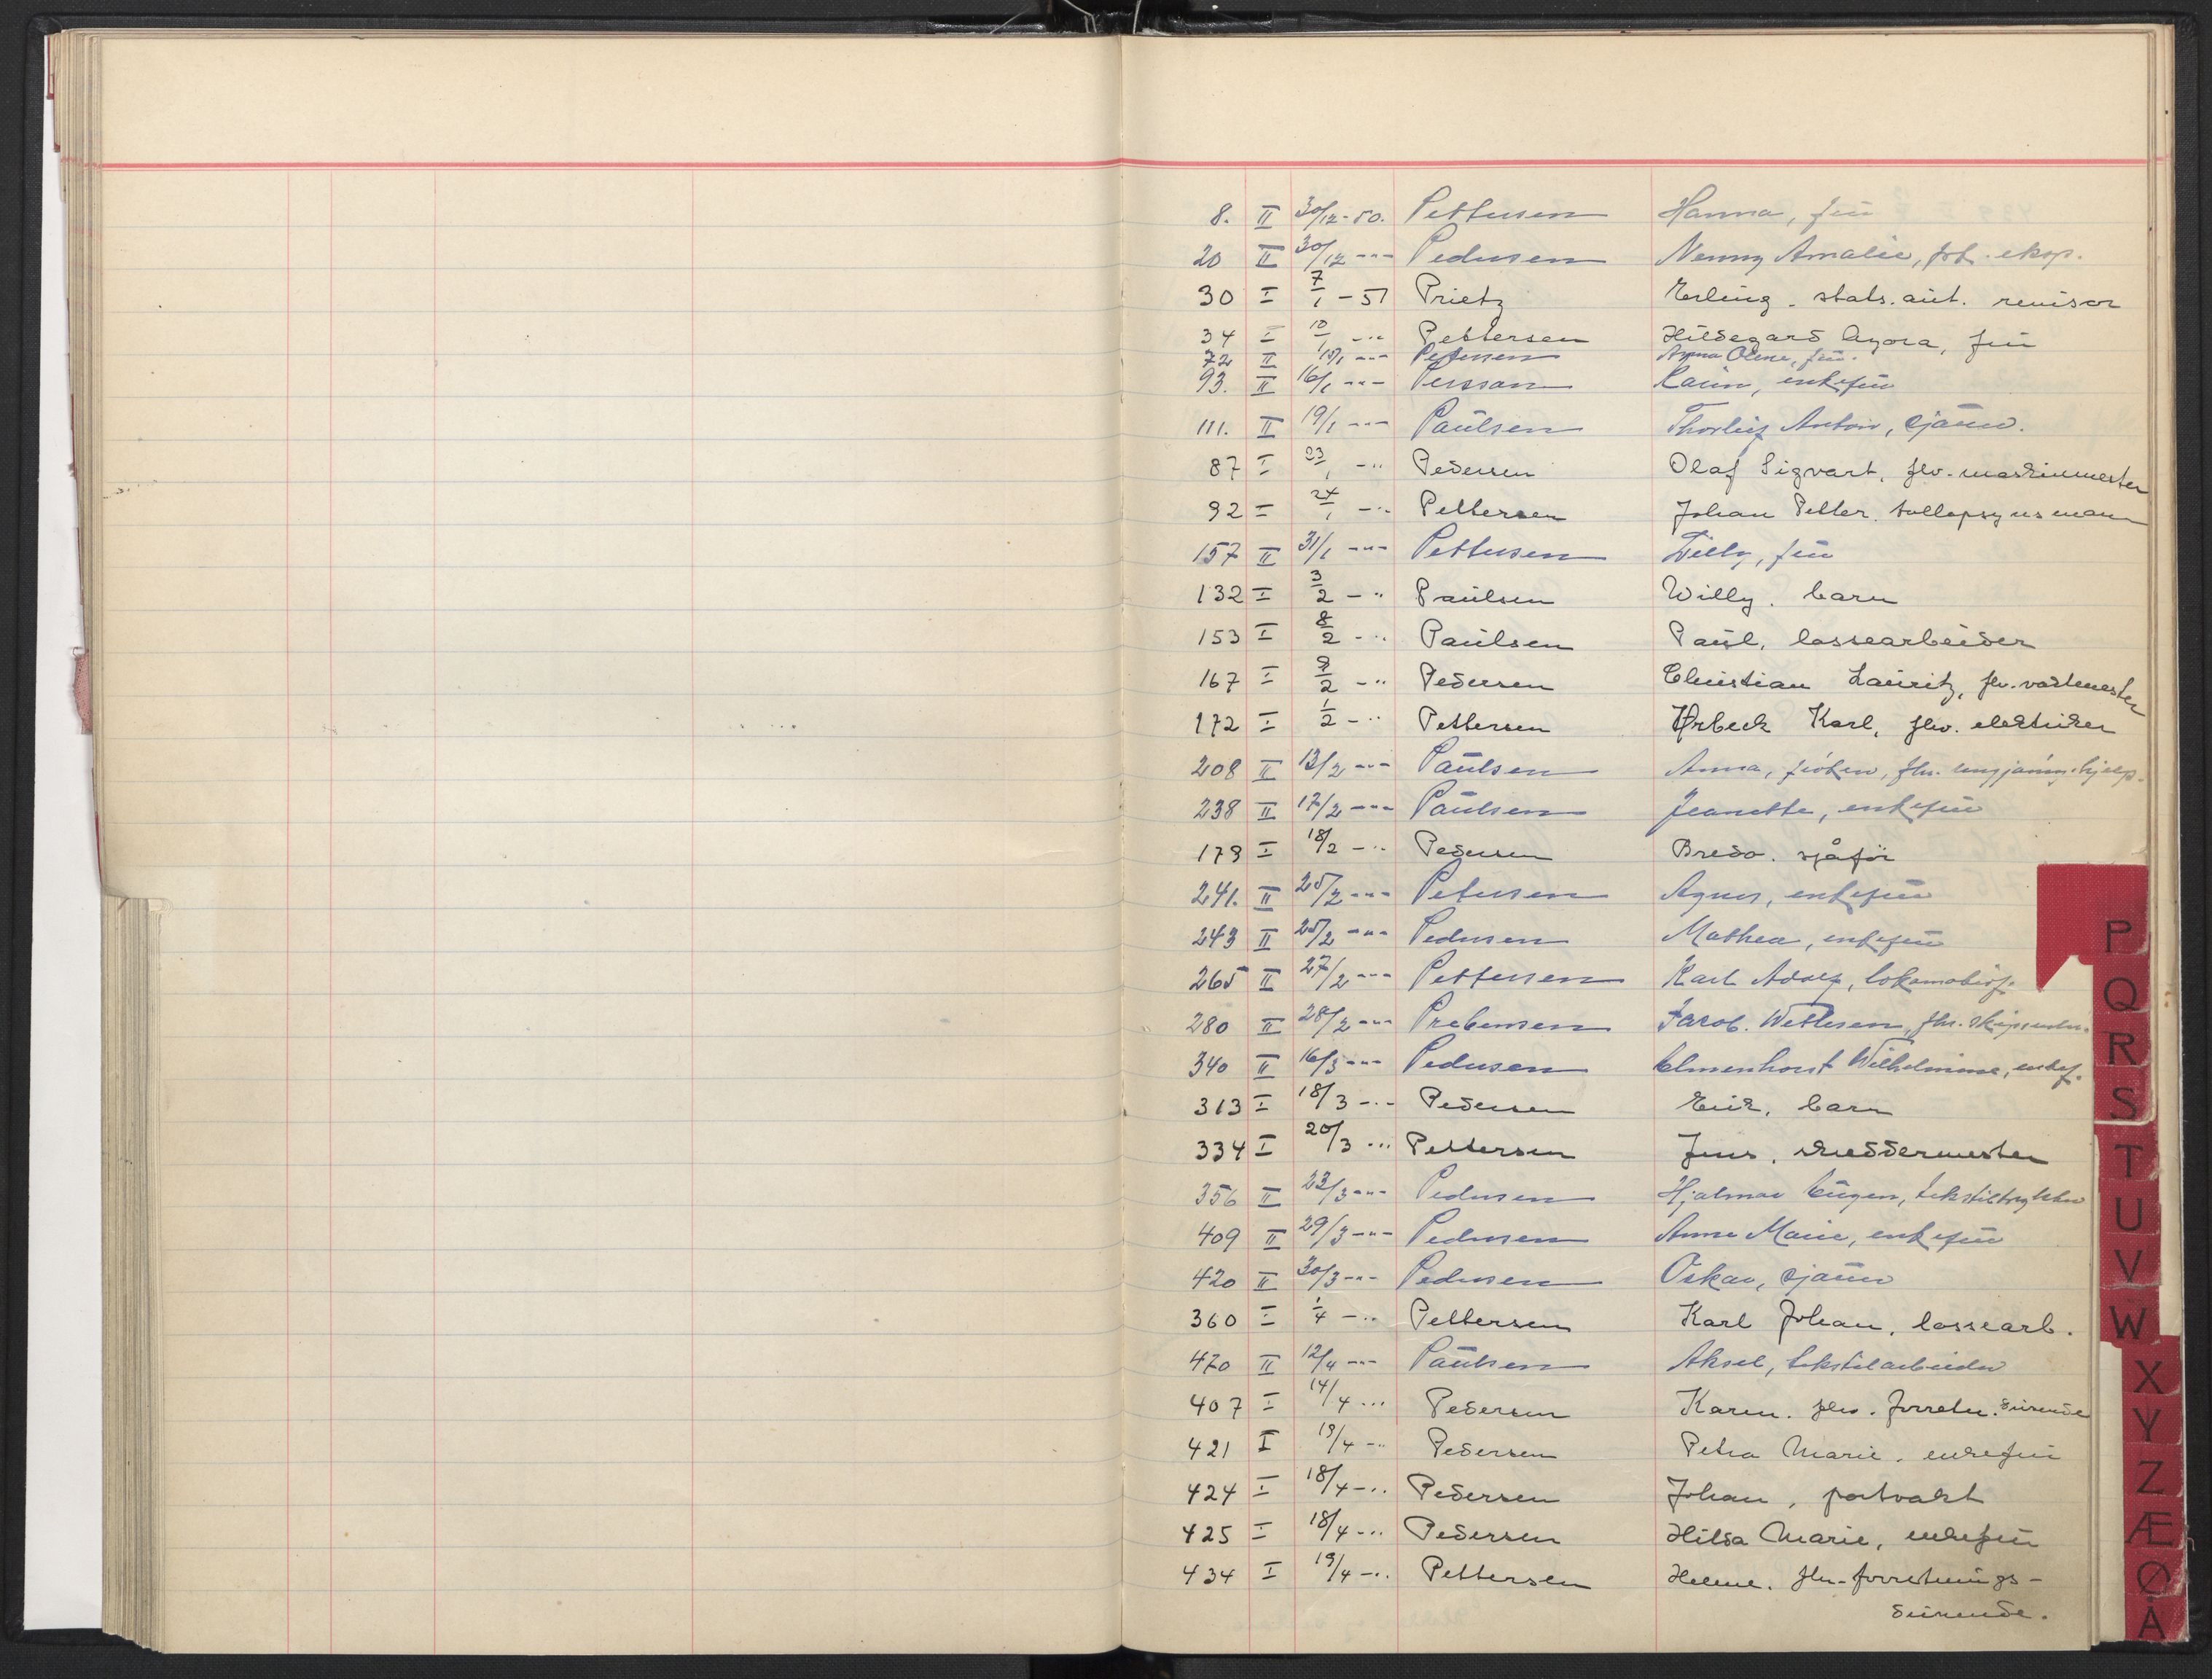 8. II 30/12-50. Pettersen Hanna, frü
20 II 30/12 -"- Pedersen Nenny Amalie, fot. eksp.
30 I 7/1 - 51 Prietz Erling. stats. aut. revisor
34 I 10/1 -" Pettersen Hildegard Agora, frü
72 II 15/1 -"- Petersen Anna Oline, frü.
93. II 16/1 -"- Persson Karin, enkefrü
111. II 19/1 -"- Paülsen Thorleif Anton, sjåmn.
87 I 23/1 -" Pedersen Olaf Sigvart, fhv. maskinmester
92 I 24/1 -" Pettersen Johan Petter. tollopsynsmann
157 II 31/1 -"- Pettersen Lilly, frü
132 I 3/2 -" Paülsen Willy. barn
153 I 8/2 -" Paülsen Paül, lossearbeider
167 I 9/2 -" Pedersen Christian Laüritz, fhv. vaktmester
172 I 1/2 -" Pettersen Ørbeck Karl, fhv. elektriker
208 II 13/2 -"- Paülsen Anna, frøken, fhv. rengjørings.hjelp.
238 II 17/2 -"- Paülsen Jeanette, enkefrü
179 I 18/2 -" Pedersen Bredo. sjåför
241. II 25/2 -"- Petersen Agnes, enkefrü
243 II 25/2 -"- Pedersen Mathea, enkefrü
265 II 27/2 -"- Pettersen Karl Adolf, lokomotivf.
280 II 28/2 -"- Prebensen Jacob. Wetlesen, fhv. skipsreder.
340 II 16/3 -"- Pedersen Elmenhorst Wilhelmine, enkef.
313 I 18/3 -"- Pedersen Erik, barn
334 I 20/3 -" Pettersen Jens, skreddermester
356 II 23/3 -"- Pedersen Hjalmar Eügen, tekstiltrykker
409 II 29/3 -"- Pedersen Anna Marie, enkefrü
420 II 30/3 -"- Pedersen Oskar, sjåmn
360 I 1/4 -" Pettersen Karl Johan, lossearb.
470 II 12/4 -"- Paülsen Aksel, tekstilarbeider
407 I 14/4 -" Pedersen Karen. fhv. forretn. drivende
421 I 19/4 -" Pedersen Petra Marie, enkefrü
424 I 18/4 -" Pedersen Johan, portvakt
425 I 18/4 -" Pedersen Hilda Marie, enkefrü
434 I 19/4 -" Pettersen Helene. fhv. forretnings-
drivende.
P
Q
R
S
T
U
V
W
X
Y
Z
Æ
Ø
Å